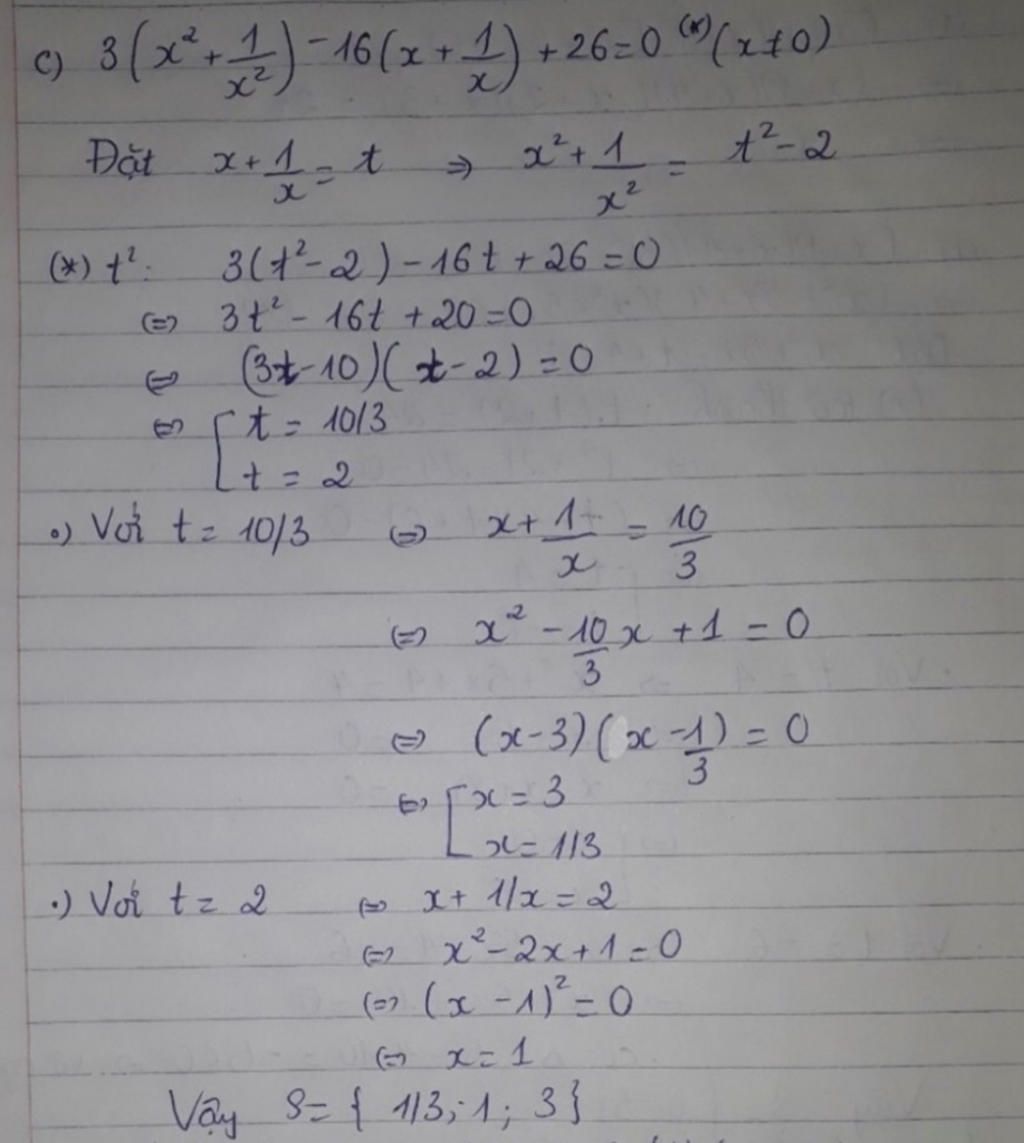 c) 3(x² + 1/x²) - 16(x + 1/x) + 26 = 0 (*) (x ≠ 0)
Đặt x + 1/x = t ⇒ x² + 1/x² = t² - 2
(*) t²: 3(t² - 2) - 16t + 26 = 0
⇔ 3t² - 16t + 20 = 0
⇔ (3t - 10)(t - 2) = 0
⇔ [ t = 10/3
t = 2
•) Với t = 10/3 ⇔ x + 1/x = 10/3
⇔ x² - 10/3 x + 1 = 0
⇔ (x - 3)(x - 1/3) = 0
⇔ [ x = 3
x = 1/3
•) Với t = 2 ⇔ x + 1/x = 2
⇔ x² - 2x + 1 = 0
⇔ (x - 1)² = 0
⇔ x = 1
Vậy S = { 1/3; 1; 3 }